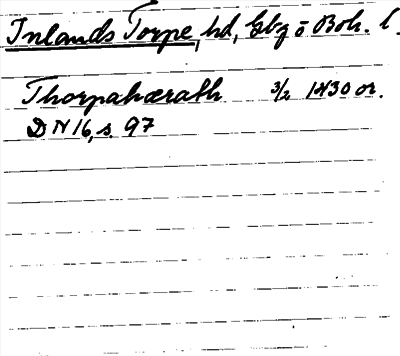 Inlands Torpe, hd, Gbg o Boh. l.
Thorpahærath 3/2 1430 or.
DN 16, s. 97